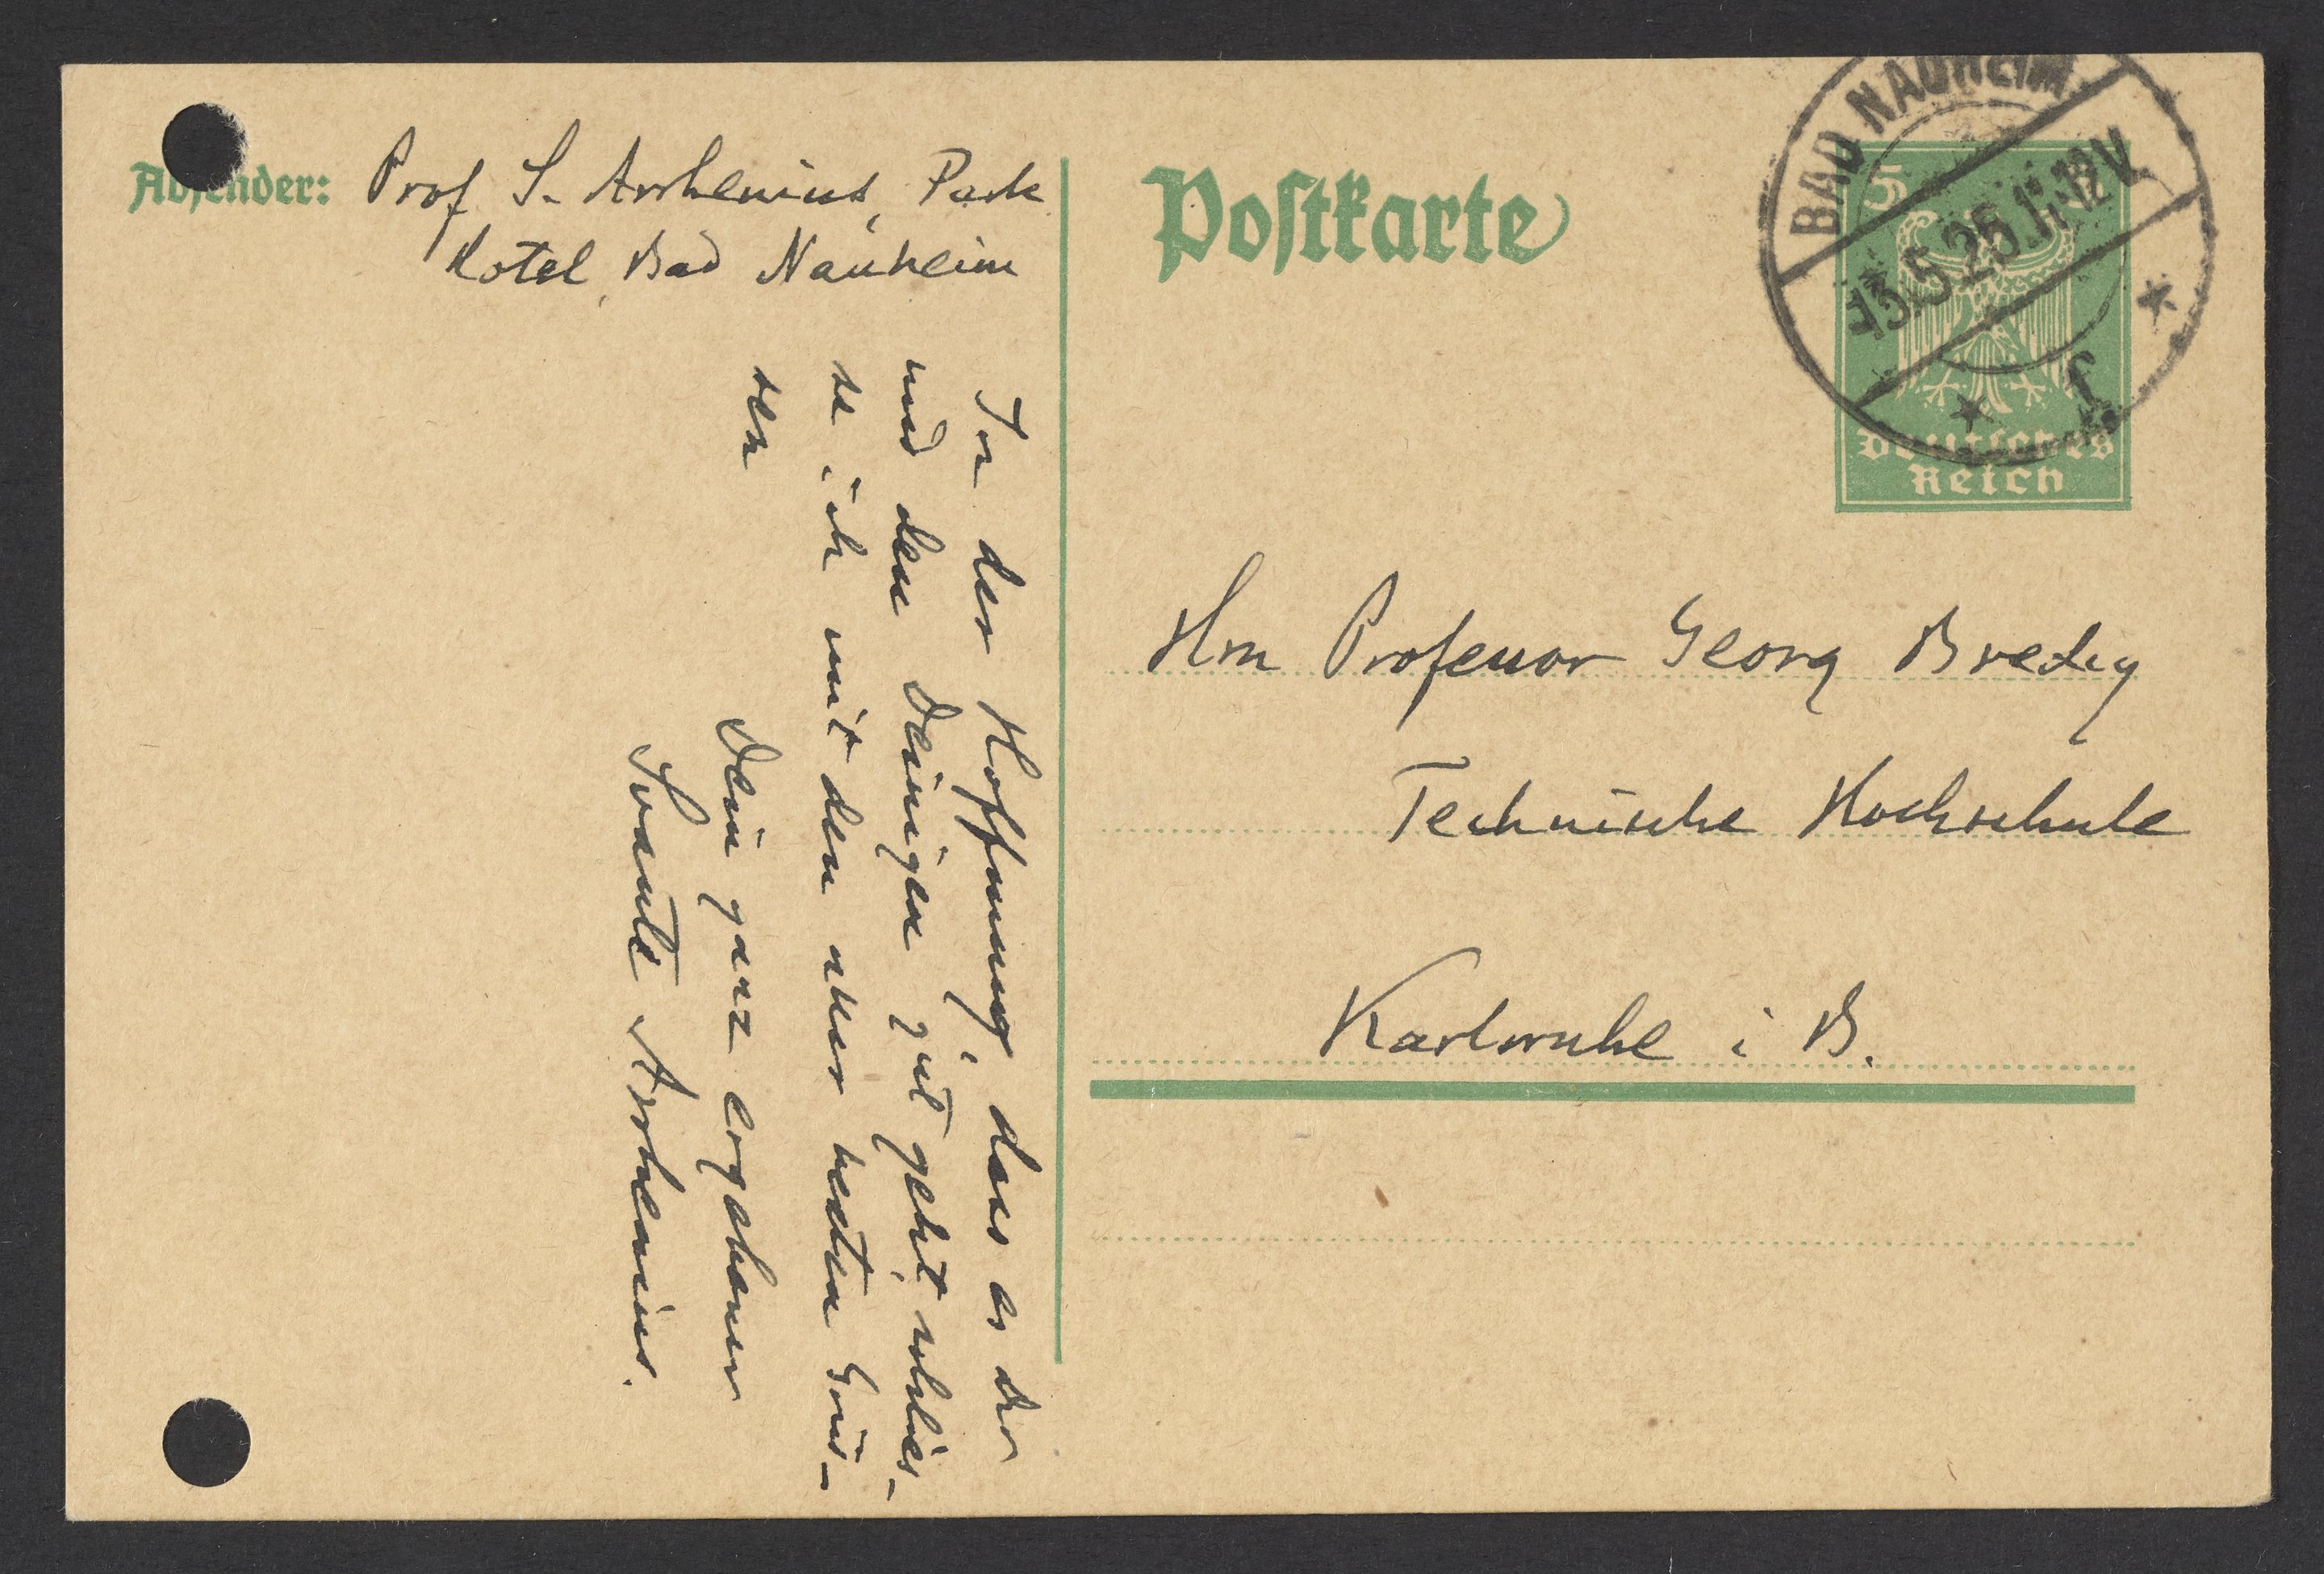 Absender: Prof S. Arrhenius, Park
Hotel, Bad Nauheim
In der Hoffnung, dass es Dir
und den Deinigen gut geht, schlies-
se ich mit den aller besten Grüs-
sen
Dein ganz ergebener
Svante Arrhenius.
Postkarte
BAD NAUHEIM
13.5.26.11-12V.
5
Deutsches
Reich
Hrn Professor Georg Bredig
Technische Hochschule
Karlsruhe i B.